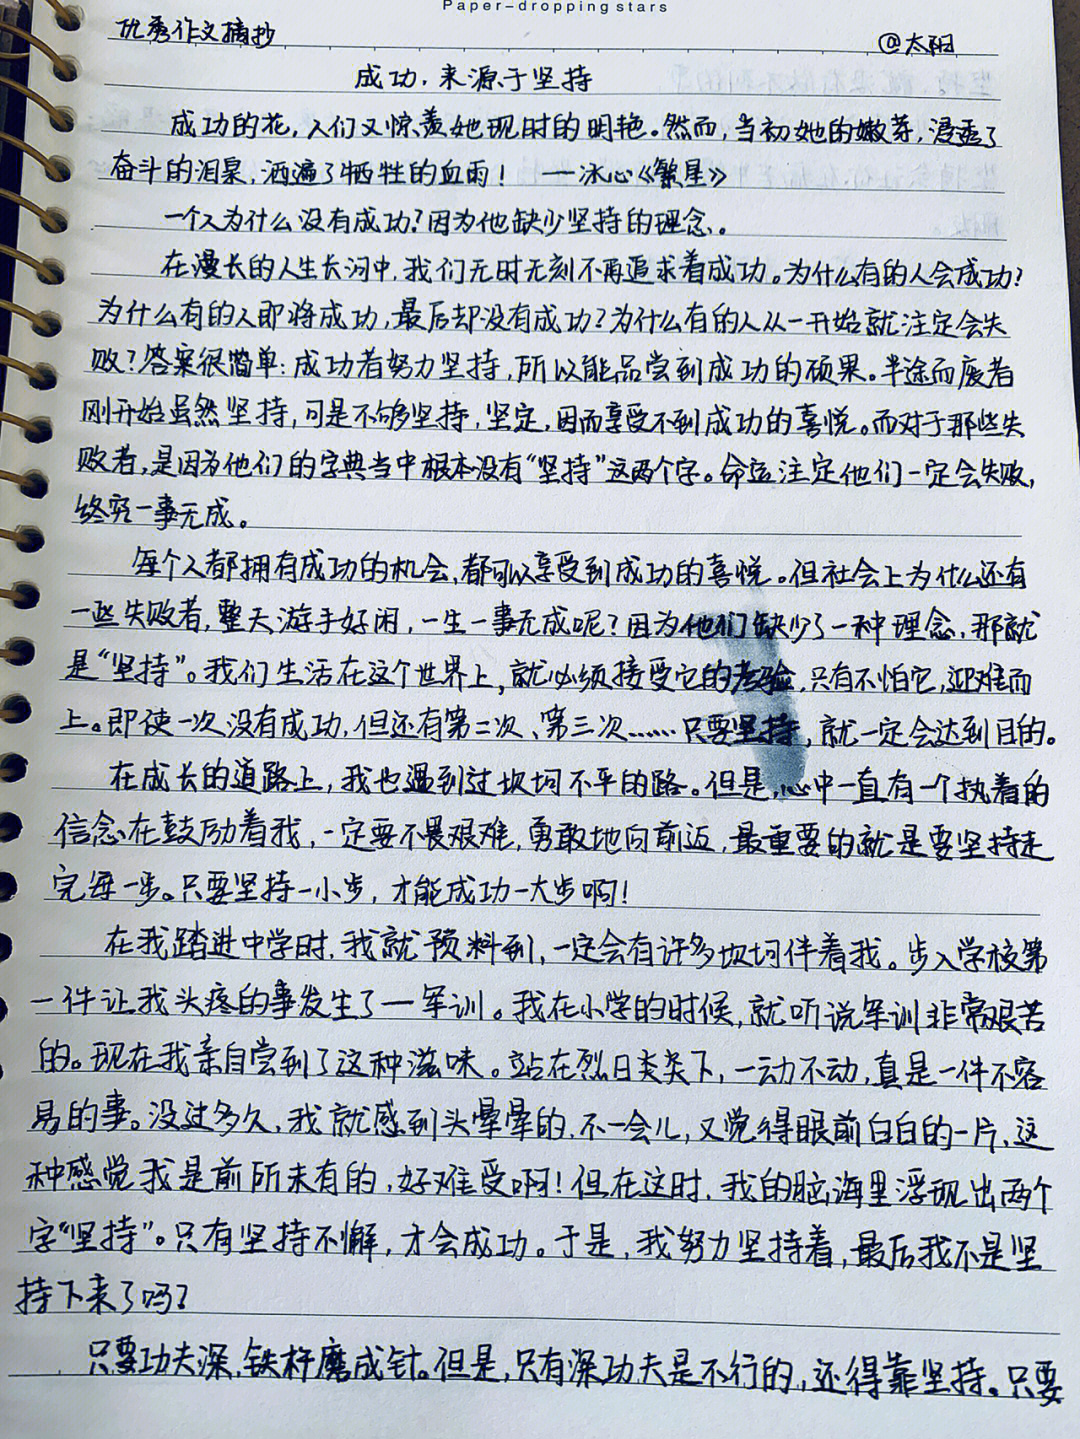 Paper-dropping stars
优秀作文摘抄 @太阳
成功，来源于坚持
成功的花，人们又惊羡她现时的明艳。然而，当初她的嫩芽，浸透了
奋斗的泪泉，洒遍了牺牲的血雨！ ——冰心《繁星》
一个人为什么没有成功？因为他缺少坚持的理念。
在漫长的人生长河中，我们无时无刻不再追求着成功。为什么有的人会成功？
为什么有的人即将成功，最后却没有成功？为什么有的人从一开始就注定会失
败？答案很简单：成功者努力坚持，所以能品尝到成功的硕果。半途而废者
刚开始虽然坚持，可是不够坚持，坚定，因而享受不到成功的喜悦。而对于那些失
败者，是因为他们的字典当中根本没有“坚持”这两个字。命运注定他们一定会失败，
终究一事无成。
每个人都拥有成功的机会，都可以享受到成功的喜悦。但社会上为什么还有
一些失败者，整天游手好闲，一生一事无成呢？因为他们缺少了一种理念，那就
是“坚持”。我们生活在这个世界上，就必须接受它的考验，只有不怕它，迎难而
上。即使一次没有成功，但还有第二次、第三次……只要坚持，就一定会达到目的。
在成长的道路上，我也遇到过坎坷不平的路。但是，心中一直有一个执着的
信念在鼓励着我，一定要不畏艰难，勇敢地向前迈，最重要的就是要坚持走
完每一步。只要坚持一小步，才能成功一大步啊！
在我踏进中学时，我就预料到，一定会有许多坎坷伴着我。步入学校第
一件让我头疼的事发生了—军训。我在小学的时候，就听说军训非常艰苦
的。现在我亲自尝到了这种滋味。站在烈日炎炎下，一动不动，真是一件不容
易的事。没过多久，我就感到头晕晕的，不一会儿，又觉得眼前白白的一片，这
种感觉我是前所未有的，好难受啊！但在这时，我的脑海里浮现出两个
字“坚持”。只有坚持不懈，才会成功。于是，我努力坚持着，最后我不是坚
持下来了吗？
只要功夫深，铁杵磨成针。但是，只有深功夫是不行的，还得靠坚持。只要